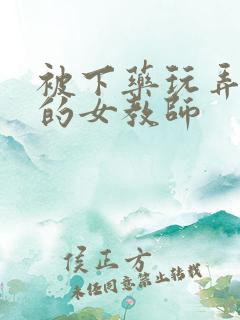 被下藥玩弄
的女教師
侯正方
未经同意禁止转载